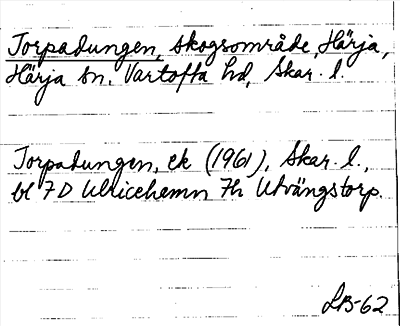 Torpadungen, skogsområde, Härja,
Härja sn. Vartofta hd, Skar. l.
Torpadungen, ek (1961), Skar. l.,
bl 7D Ulricehamn 7h Utvängstorp.
LB-62